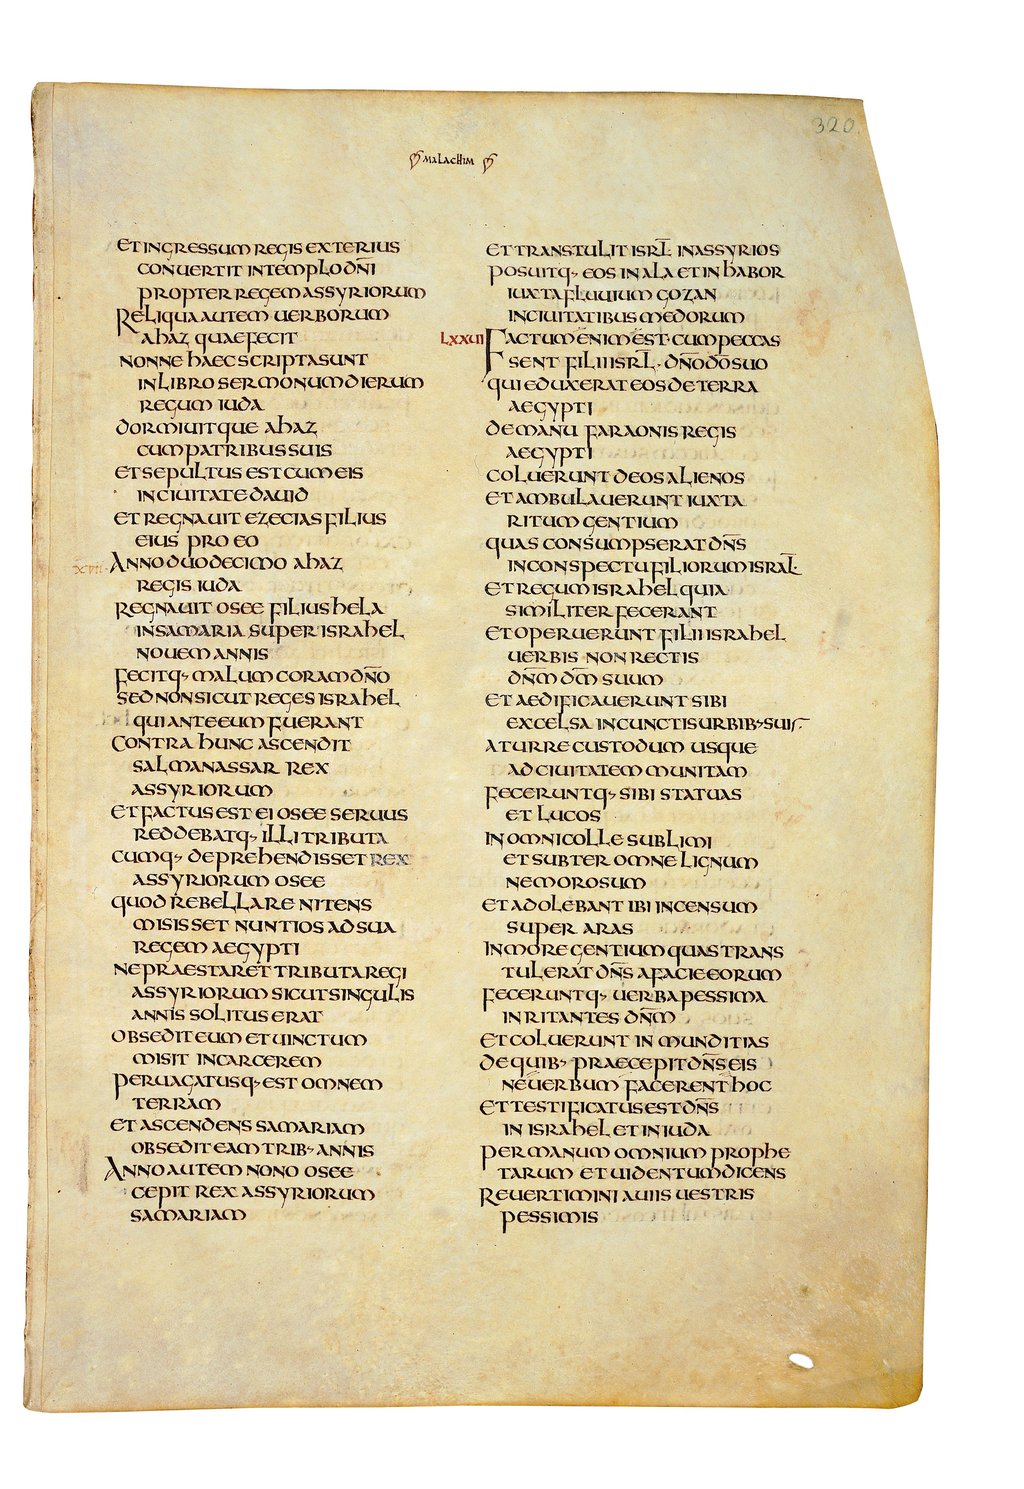 320
MALACHIM
ET INGRESSUM REGIS EXTERIUS
CONUERTIT IN TEMPLO DÑI
PROPTER REGEM ASSYRIORUM
RELIQUA AUTEM UERBORUM
AHAZ QUAE FECIT
NONNE HAEC SCRIPTA SUNT
IN LIBRO SERMONUM DIERUM
REGUM IUDA
DORMIUITQUE AHAZ
CUM PATRIBUS SUIS
ET SEPULTUS EST CUM EIS
IN CIUITATE DAUID
ET REGNAUIT EZECIAS FILIUS
EIUS PRO EO
XVII ANNO DUODECIMO AHAZ
REGIS IUDA
REGNAUIT OSEE FILIUS HELA
IN SAMARIA SUPER ISRAHEL
NOUEM ANNIS
FECITQ· MALUM CORAM DÑO
SED NON SICUT REGES ISRAHEL
QUI ANTE EUM FUERANT
CONTRA HUNC ASCENDIT
SALMANASSAR REX
ASSYRIORUM
ET FACTUS EST EI OSEE SERUUS
REDDEBATQ· ILLI TRIBUTA
CUMQ· DEPREHENDISSET REX
ASSYRIORUM OSEE
QUOD REBELLARE NITENS
MISISSET NUNTIOS AD SUA
REGEM AEGYPTI
NE PRAESTARET TRIBUTA REGI
ASSYRIORUM SICUT SINGULIS
ANNIS SOLITUS ERAT
OBSEDIT EUM ET UINCTUM
MISIT IN CARCEREM
PERUAGATUSQ· EST OMNEM
TERRAM
ET ASCENDENS SAMARIAM
OBSEDIT EAM TRIB· ANNIS
ANNO AUTEM NONO OSEE
CEPIT REX ASSYRIORUM
SAMARIAM
ET TRANSTULIT ISRL̄ IN ASSYRIOS
POSUITQ· EOS IN ALA ET IN HABOR
IUXTA FLUUIUM GOZAN
IN CIUITATIBUS MEDORUM
LXXVII FACTUM ENIM EST CUM PECCAS
SENT FILII ISRL̄ · DÑO DŌ SUO
QUI EDUXERAT EOS DE TERRA
AEGYPTI
DE MANU FARAONIS REGIS
AEGYPTI
COLUERUNT DEOS ALIENOS
ET AMBULAUERUNT IUXTA
RITUM GENTIUM
QUAS CONSUMPSERAT DÑS
IN CONSPECTU FILIORUM ISRAL̄
ET REGUM ISRAHEL QUIA
SIMILITER FECERANT
ET OPERUERUNT FILII ISRAHEL
UERBIS NON RECTIS
DÑM DM̄ SUUM
ET AEDIFICAUERUNT SIBI
EXCELSA IN CUNCTIS URBIB· SUIS
A TURRE CUSTODUM USQUE
AD CIUITATEM MUNITAM
FECERUNTQ· SIBI STATUAS
ET LUCOS
IN OMNI COLLE SUBLIMI
ET SUBTER OMNE LIGNUM
NEMOROSUM
ET ADOLEBANT IBI INCENSUM
SUPER ARAS
IN MORE GENTIUM QUAS TRANS
TULERAT DÑS A FACIE EORUM
FECERUNTQ· UERBA PESSIMA
INRITANTES DÑM
ET COLUERUNT INMUNDITIAS
DE QUIB· PRAECEPIT DÑS EIS
NE UERBUM FACERENT HOC
ET TESTIFICATUS EST DÑS
IN ISRAHEL ET IN IUDA
PER MANUM OMNIUM PROPHE
TARUM ET UIDENTUM DICENS
REUERTIMINI A UIIS UESTRIS
PESSIMIS